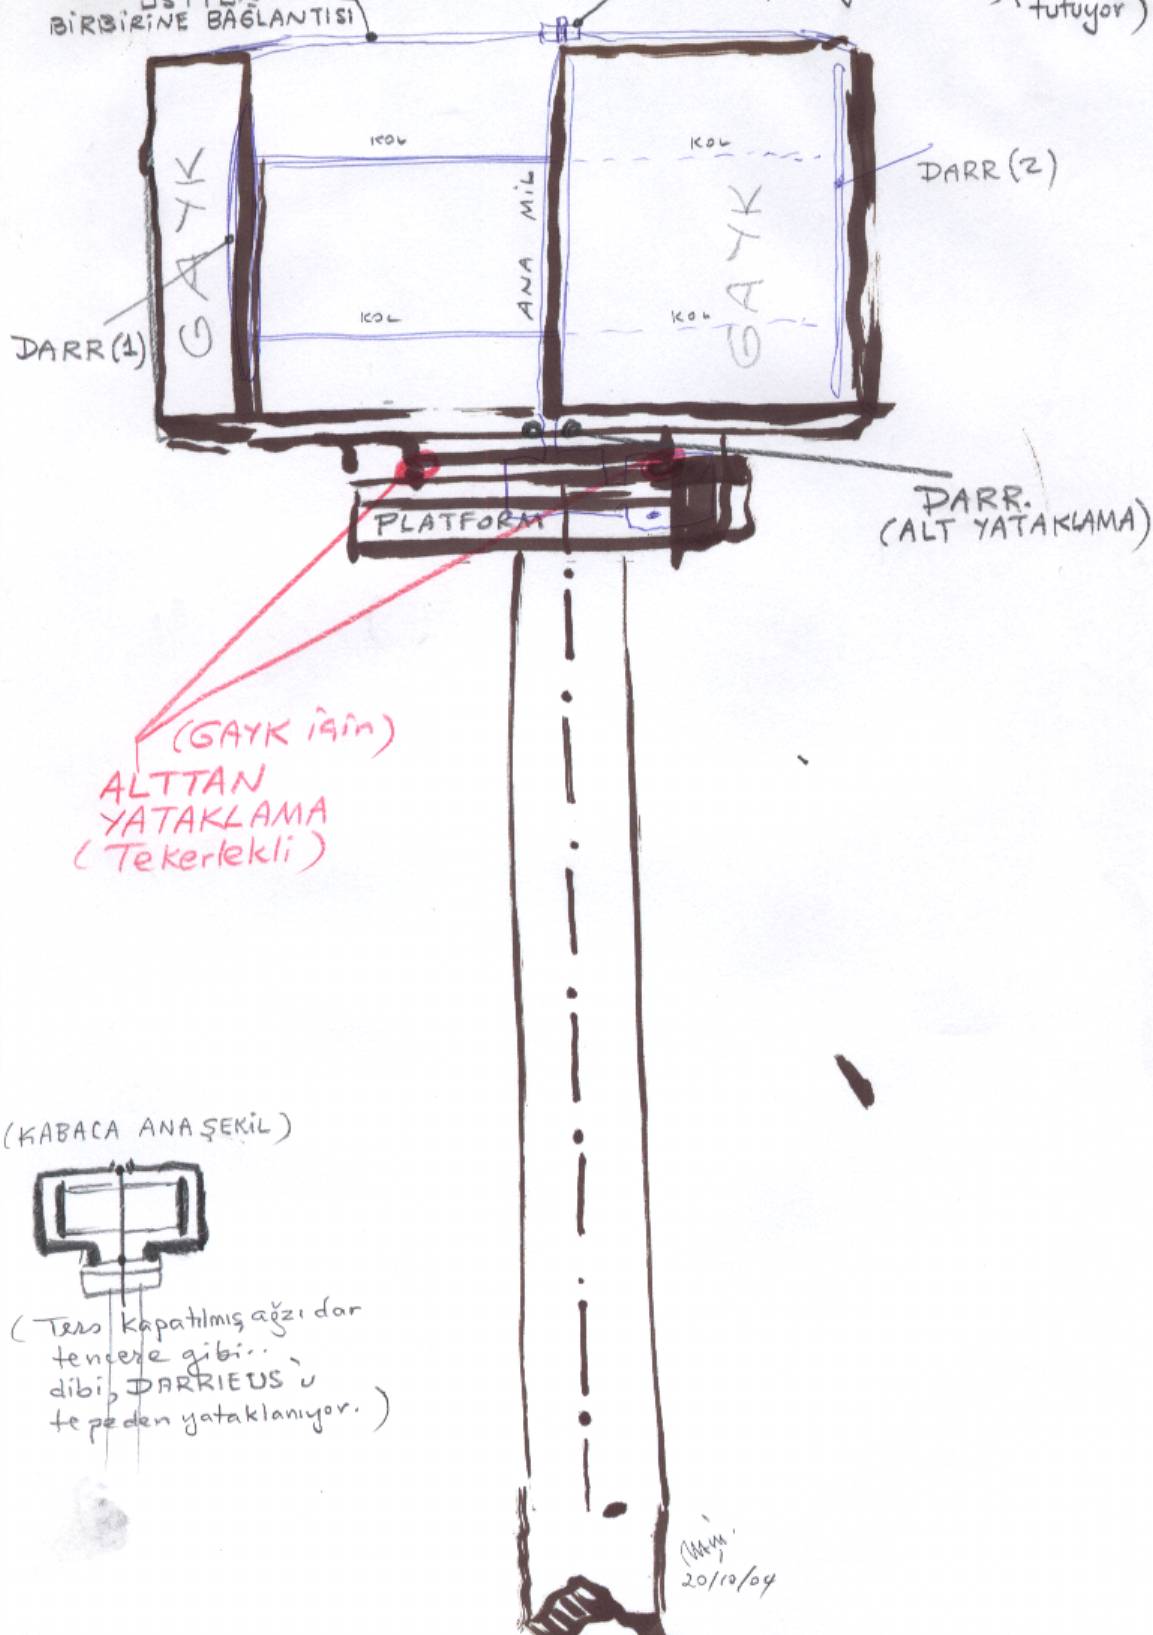 BİRBİRİNE BAĞLANTISI
tutuyor)
KOL
KOL
GAYK
ANA MİL
GAYK
DARR(2)
KOL
KOL
DARR(1)
DARR.
(ALT YATAKLAMA)
PLATFORM
(GAYK için)
ALTTAN
YATAKLAMA
(Tekerlekli)
(KABACA ANA ŞEKİL)
(Ters kapatılmış, ağzı dar
tencere gibi..
dibi, DARRIEUS'ü
tepeden yataklanıyor.)
20/10/04